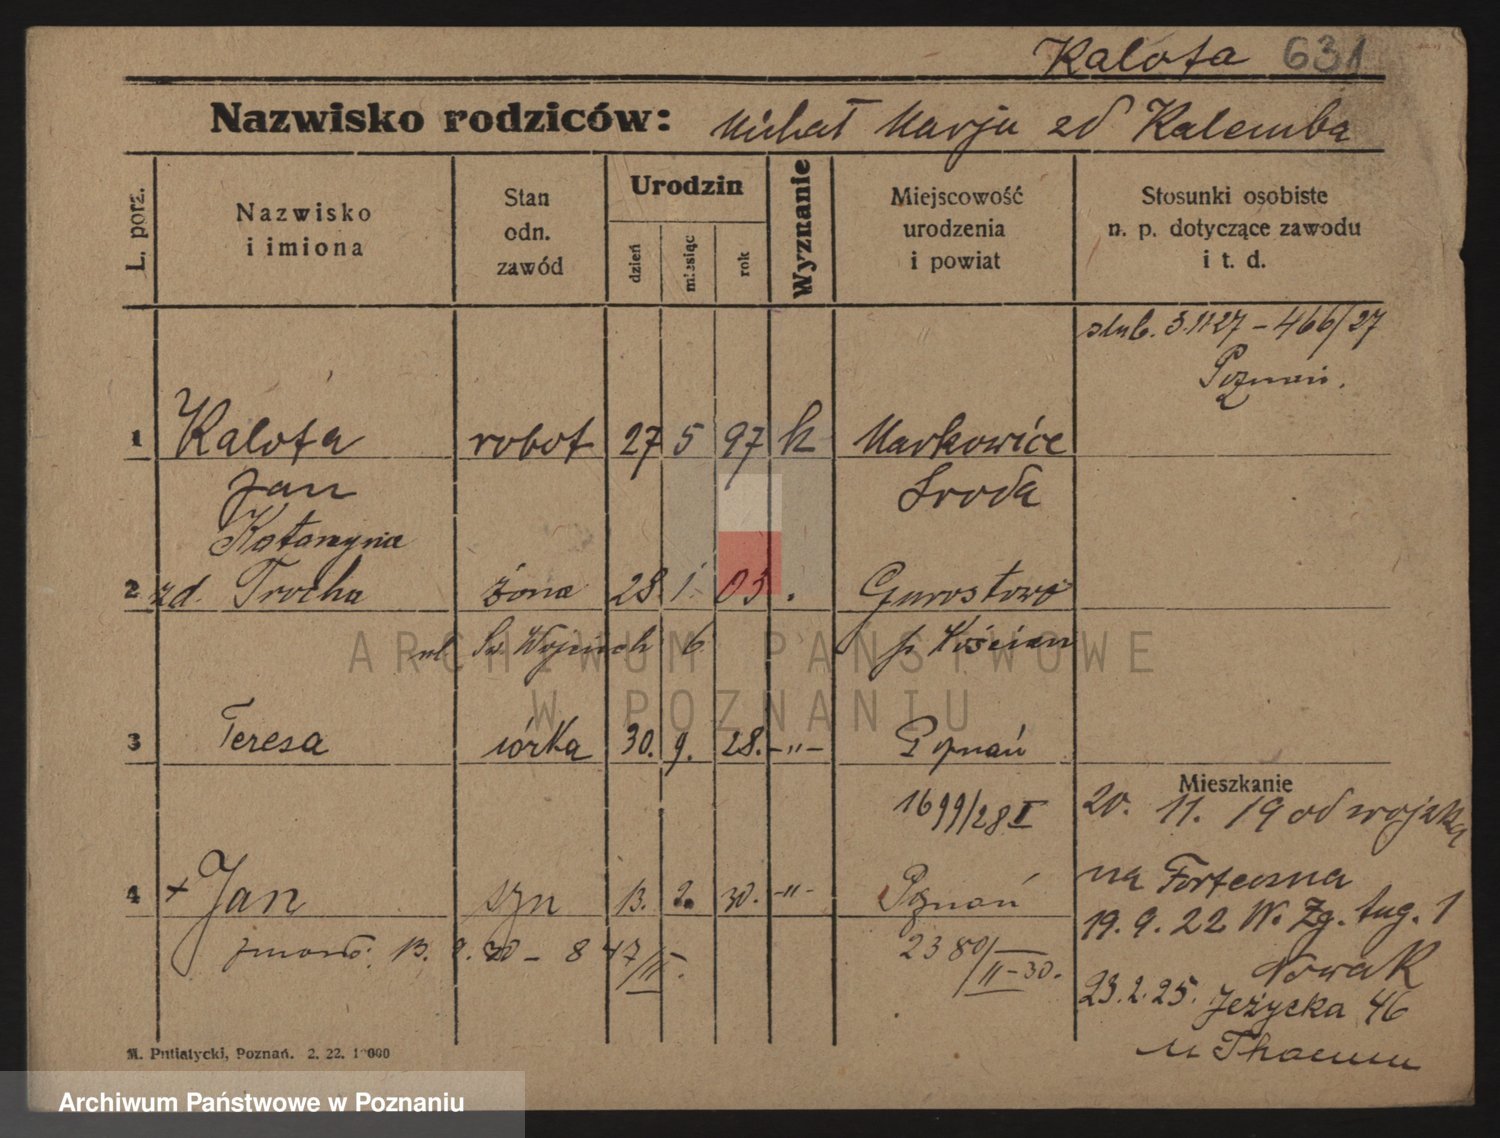 Kalota 631
Nazwisko rodziców: Michał Marja zd Kalemba
L. porz.
Nazwisko
i imiona
Stan
odn.
zawód
Urodzin
dzień
miesiąc
rok
Wyznanie
Miejscowość
urodzenia
i powiat
Stosunki osobiste
n. p. dotyczące zawodu
i t. d.
ślub. 3.11 27 - 466/27
Poznań.
1 Kalota robot 27 5 97 k Markowice
Jan Sroda
Katarzyna
2 zd. Trocha żona 28 1. 03 . Gurostowo
ul Św. Wojciech 6 p Kościan
ARCHIWUM PAŃSTWOWE
W POZNANIU
3 Teresa córka 30. 9. 28. -"- Poznań
1699/28 I
Mieszkanie
20. 11. 19 od wojska
4 + Jan syn 13. 2. 30. -"- Poznań
na Forteczna
zmarł. 13. 9. 30 - 847/II. 2380/II-30.
19. 9. 22 W. Zg. tug. 1
Nowak
23.2.25. Jeżycka 46
u
M. Putiatycki, Poznań. 2. 22. 10000
Archiwum Państwowe w Poznaniu